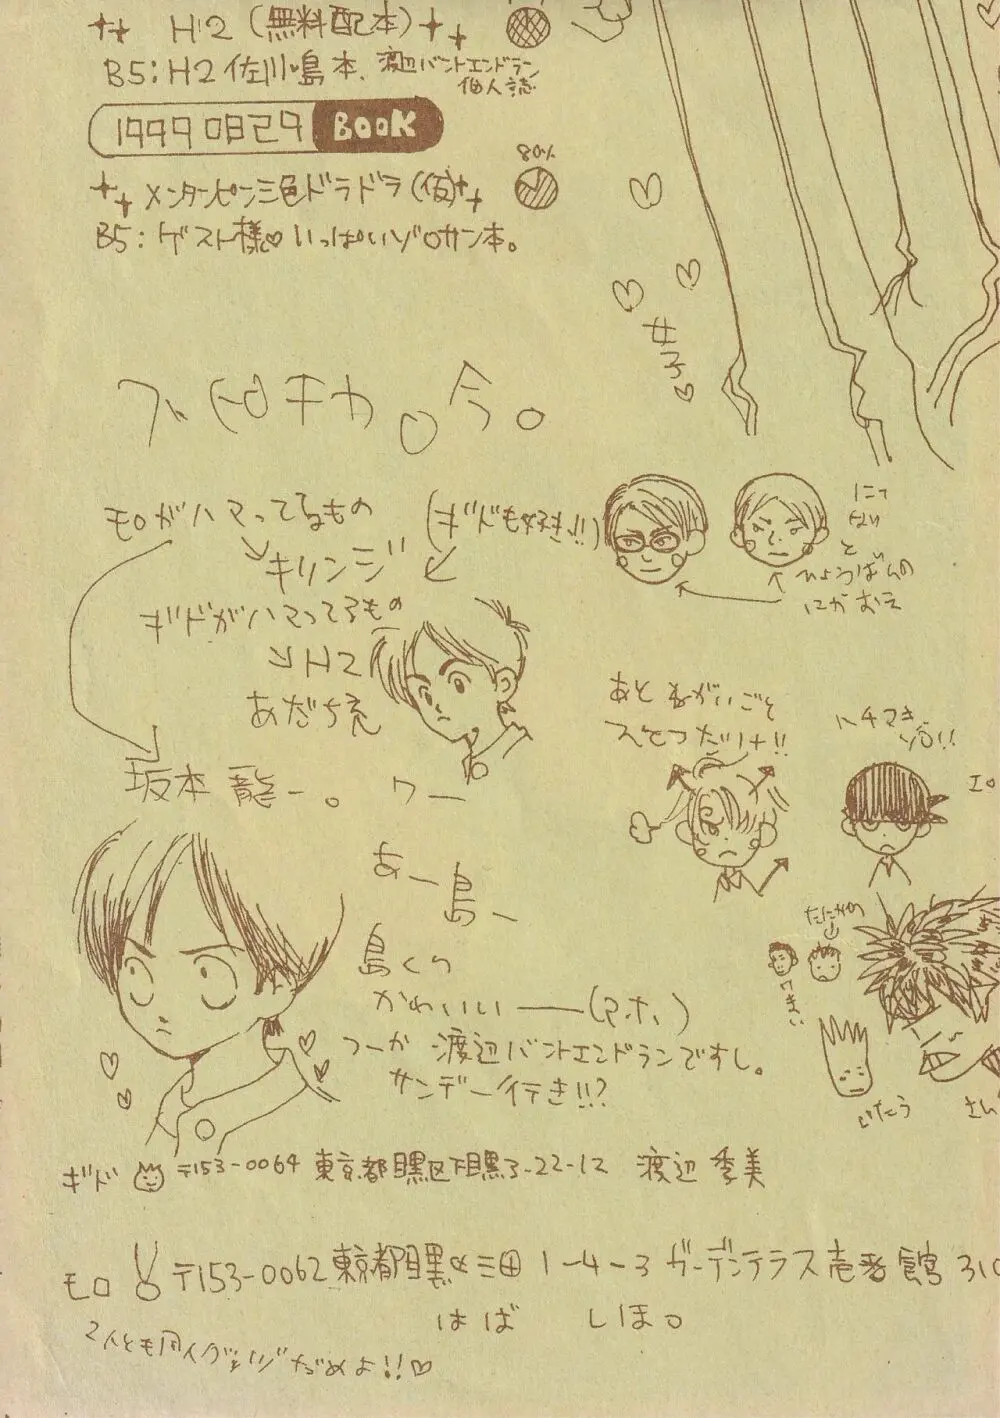 H2（無料配本）
B5：H2佐川・島本、渡辺バントエンドラン
個人誌
19990829 BOOK
80%
メンタンピン三色ドラドラ（仮）
B5：ゲスト様♡いっぱいゾロサン本。
女子♡
今。
モロがハマってるもの
（ギドも好き!!）
キリンジ
ギドがハマってるもの
H2
あだち充
坂本龍一。 ワー
にて
ない
と
ひょうばんの
にがおえ
あと ねがいごと
ハチマキ
あー島ー
島くり
かわいいー（アホ）
つーか 渡辺バントエンドランですし。
サンデー行き!!?
ギド 〒153-0064 東京都目黒区下目黒3-22-12 渡辺 季美
モロ 〒153-0062 東京都目黒区三田1-4-3 ガーデンテラス壱番館 310
はば しほ。
2人とも同人
だめよ!!♡